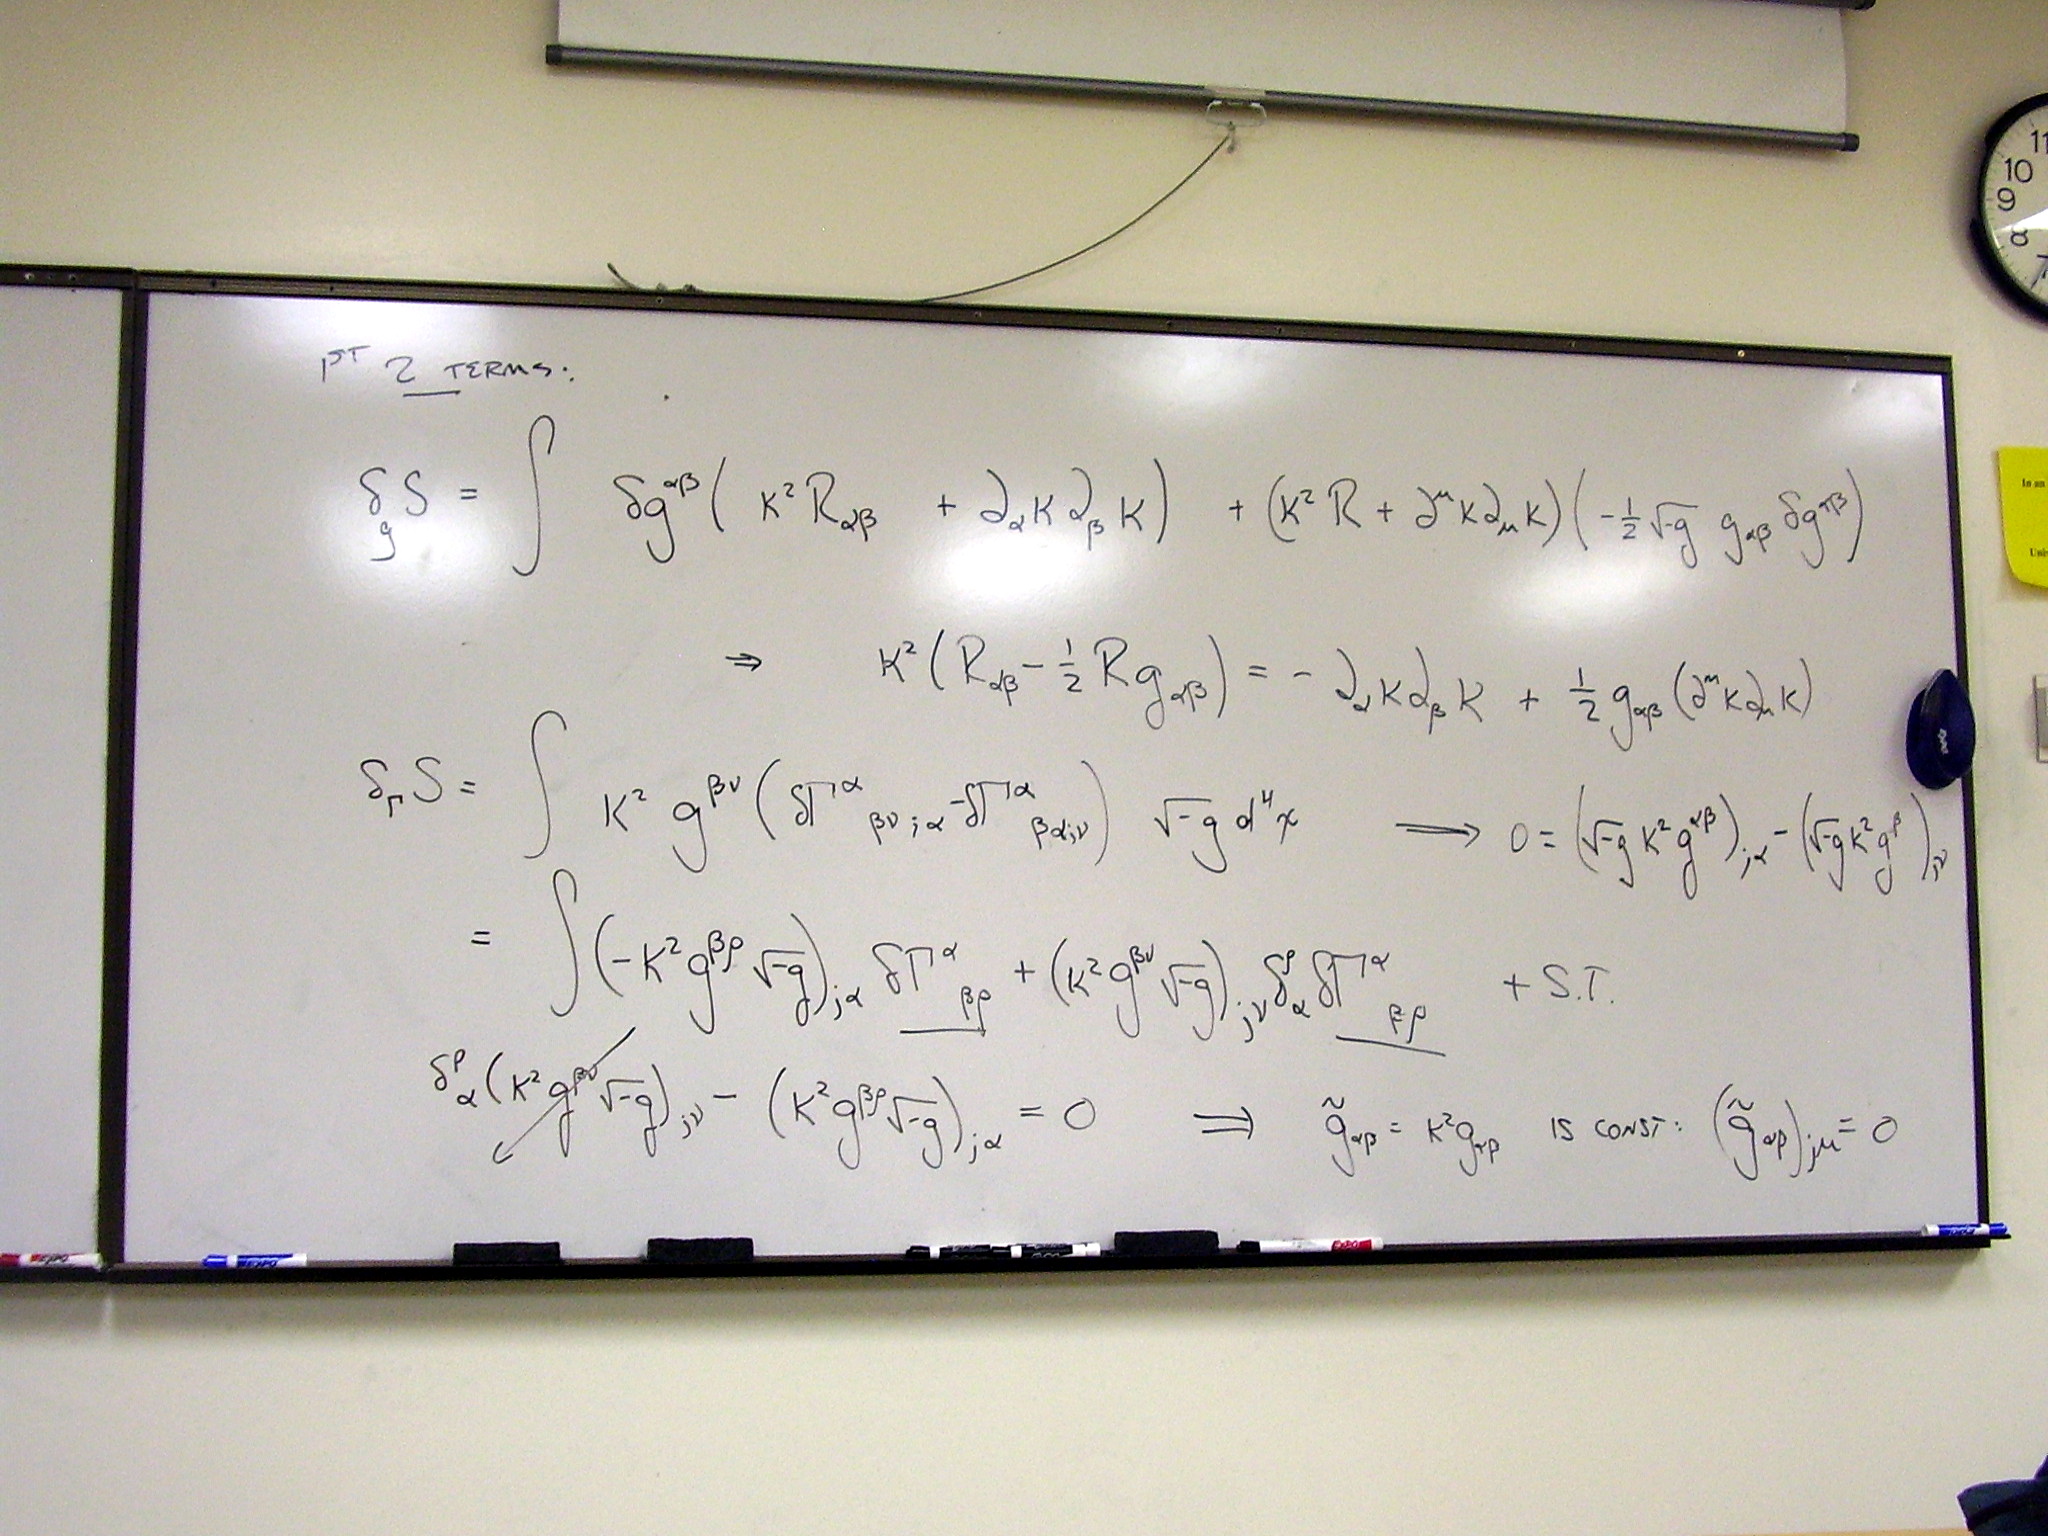 1ST 2 TERMS:
δ_g S = ∫ δg^{αβ} ( K² R_{αβ} + ∂_α K ∂_β K ) + ( K² R + ∂^μ K ∂_μ K ) ( -½ √-g g_{αβ} δg^{αβ} )
⇒ K² ( R_{αβ} - ½ R g_{αβ} ) = - ∂_α K ∂_β K + ½ g_{αβ} ( ∂^μ K ∂_μ K )
δ_Γ S = ∫ K² g^{βν} ( δΓ^α_{βν;α} - δΓ^α_{βα;ν} ) √-g d⁴x ⟹ 0 = ( √-g K² g^{αβ} )_{;α} - ( √-g K² g^β )_{;ν}
= ∫ ( -K² g^{βρ} √-g )_{;α} δΓ^α_{βρ} + ( K² g^{βν} √-g )_{;ν} δ^ρ_α δΓ^α_{βρ} + S.T.
δ^ρ_α ( K² g^{βν} √-g )_{;ν} - ( K² g^{βρ} √-g )_{;α} = 0 ⟹ g̃_{αβ} = K² g_{αβ} IS CONST: ( g̃_{αβ} )_{;μ} = 0
11
10
9
8
7
In an
Univ
EXPO
EXPO
EXPO